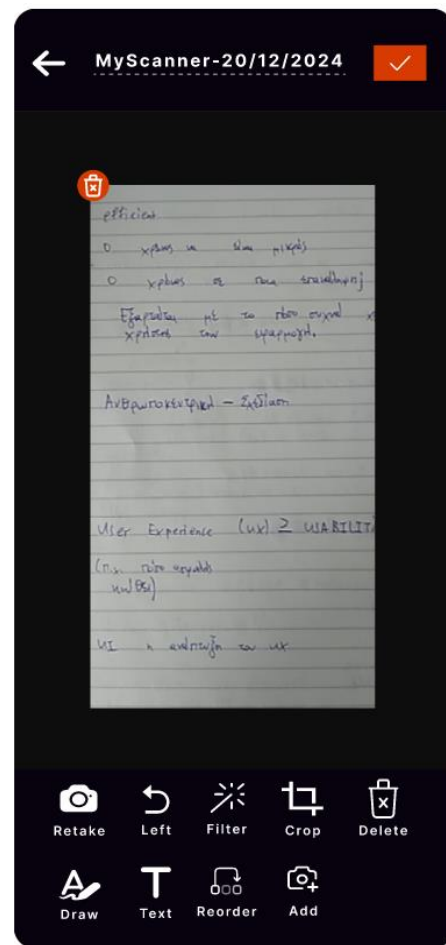 MyScanner-20/12/2024
efficient
Ο χρόνος να είναι μικρός
Ο χρόνος σε ποια επανάληψη;
Εξαρτάται με το πόσο συχνά
χρήστες των εφαρμογή.
Ανθρωποκεντρική – Σχεδίαση
User Experience (UX) ≥ USABILIT
(π.χ. πόσο
UI η ανάπτυξη του UX
Retake Left Filter Crop Delete
Draw Text Reorder Add